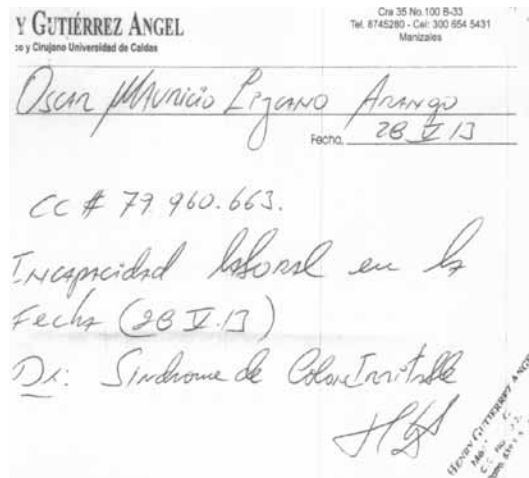 Y GUTIÉRREZ ANGEL
co y Cirujano Universidad de Caldas
Cra 35 No.100 B-33
Tel. 8745280 - Cel: 300 654 5431
Manizales
Oscar Mauricio Lizcano Arango
Fecha. 28 V 13
CC # 79.960.663.
Incapacidad laboral en la
Fecha (28 V.13)
Dx: Sindrome de Colon Irritable
HENRY GUTIERREZ ANGEL